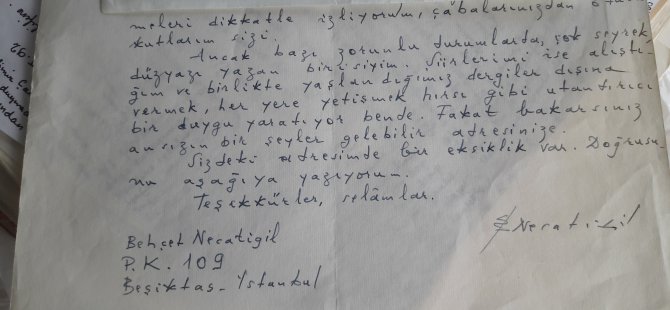 meleri dikkatle izliyorum, çabalarınızdan
kutlarım sizi.
Ancak bazı zorunlu durumlarda, çok seyrek
düzyazı yazan birisiyim. Şiirlerimi ise alıştı-
ğım ve birlikte yaşlandığımız dergiler dışına
vermek, her yere yetişmek hırsı gibi utandırıcı
bir duygu yaratıyor bende. Fakat bakarsınız
ansızın bir şeyler gelebilir adresinize.
Sizdeki adresimde bir eksiklik var. Doğrusu-
nu aşağıya yazıyorum.
Teşekkürler, selâmlar.
Necatigil
Behçet Necatigil
P.K. 109
Beşiktaş - İstanbul